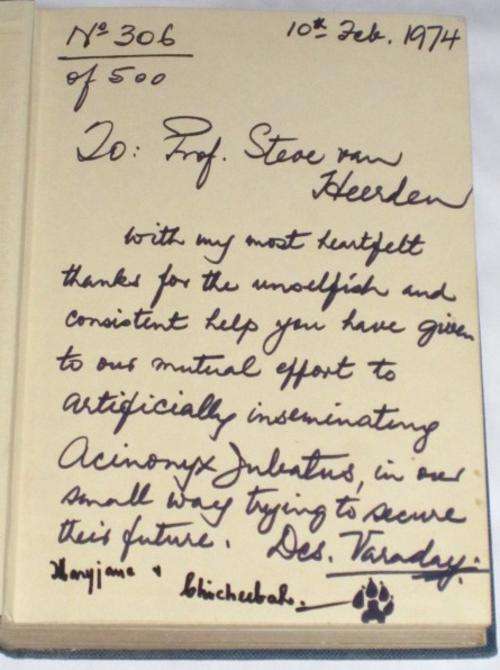 Nº 306
10th Feb. 1974
of 500
To: Prof. Steve van
Heerden
with my most heartfelt
thanks for the unselfish and
consistent help you have given
to our mutual effort to
artificially inseminating
Acinonyx Jubatus, in our
small way trying to secure
their future. Des. Varaday.
Maryjane &
Chicheebah.